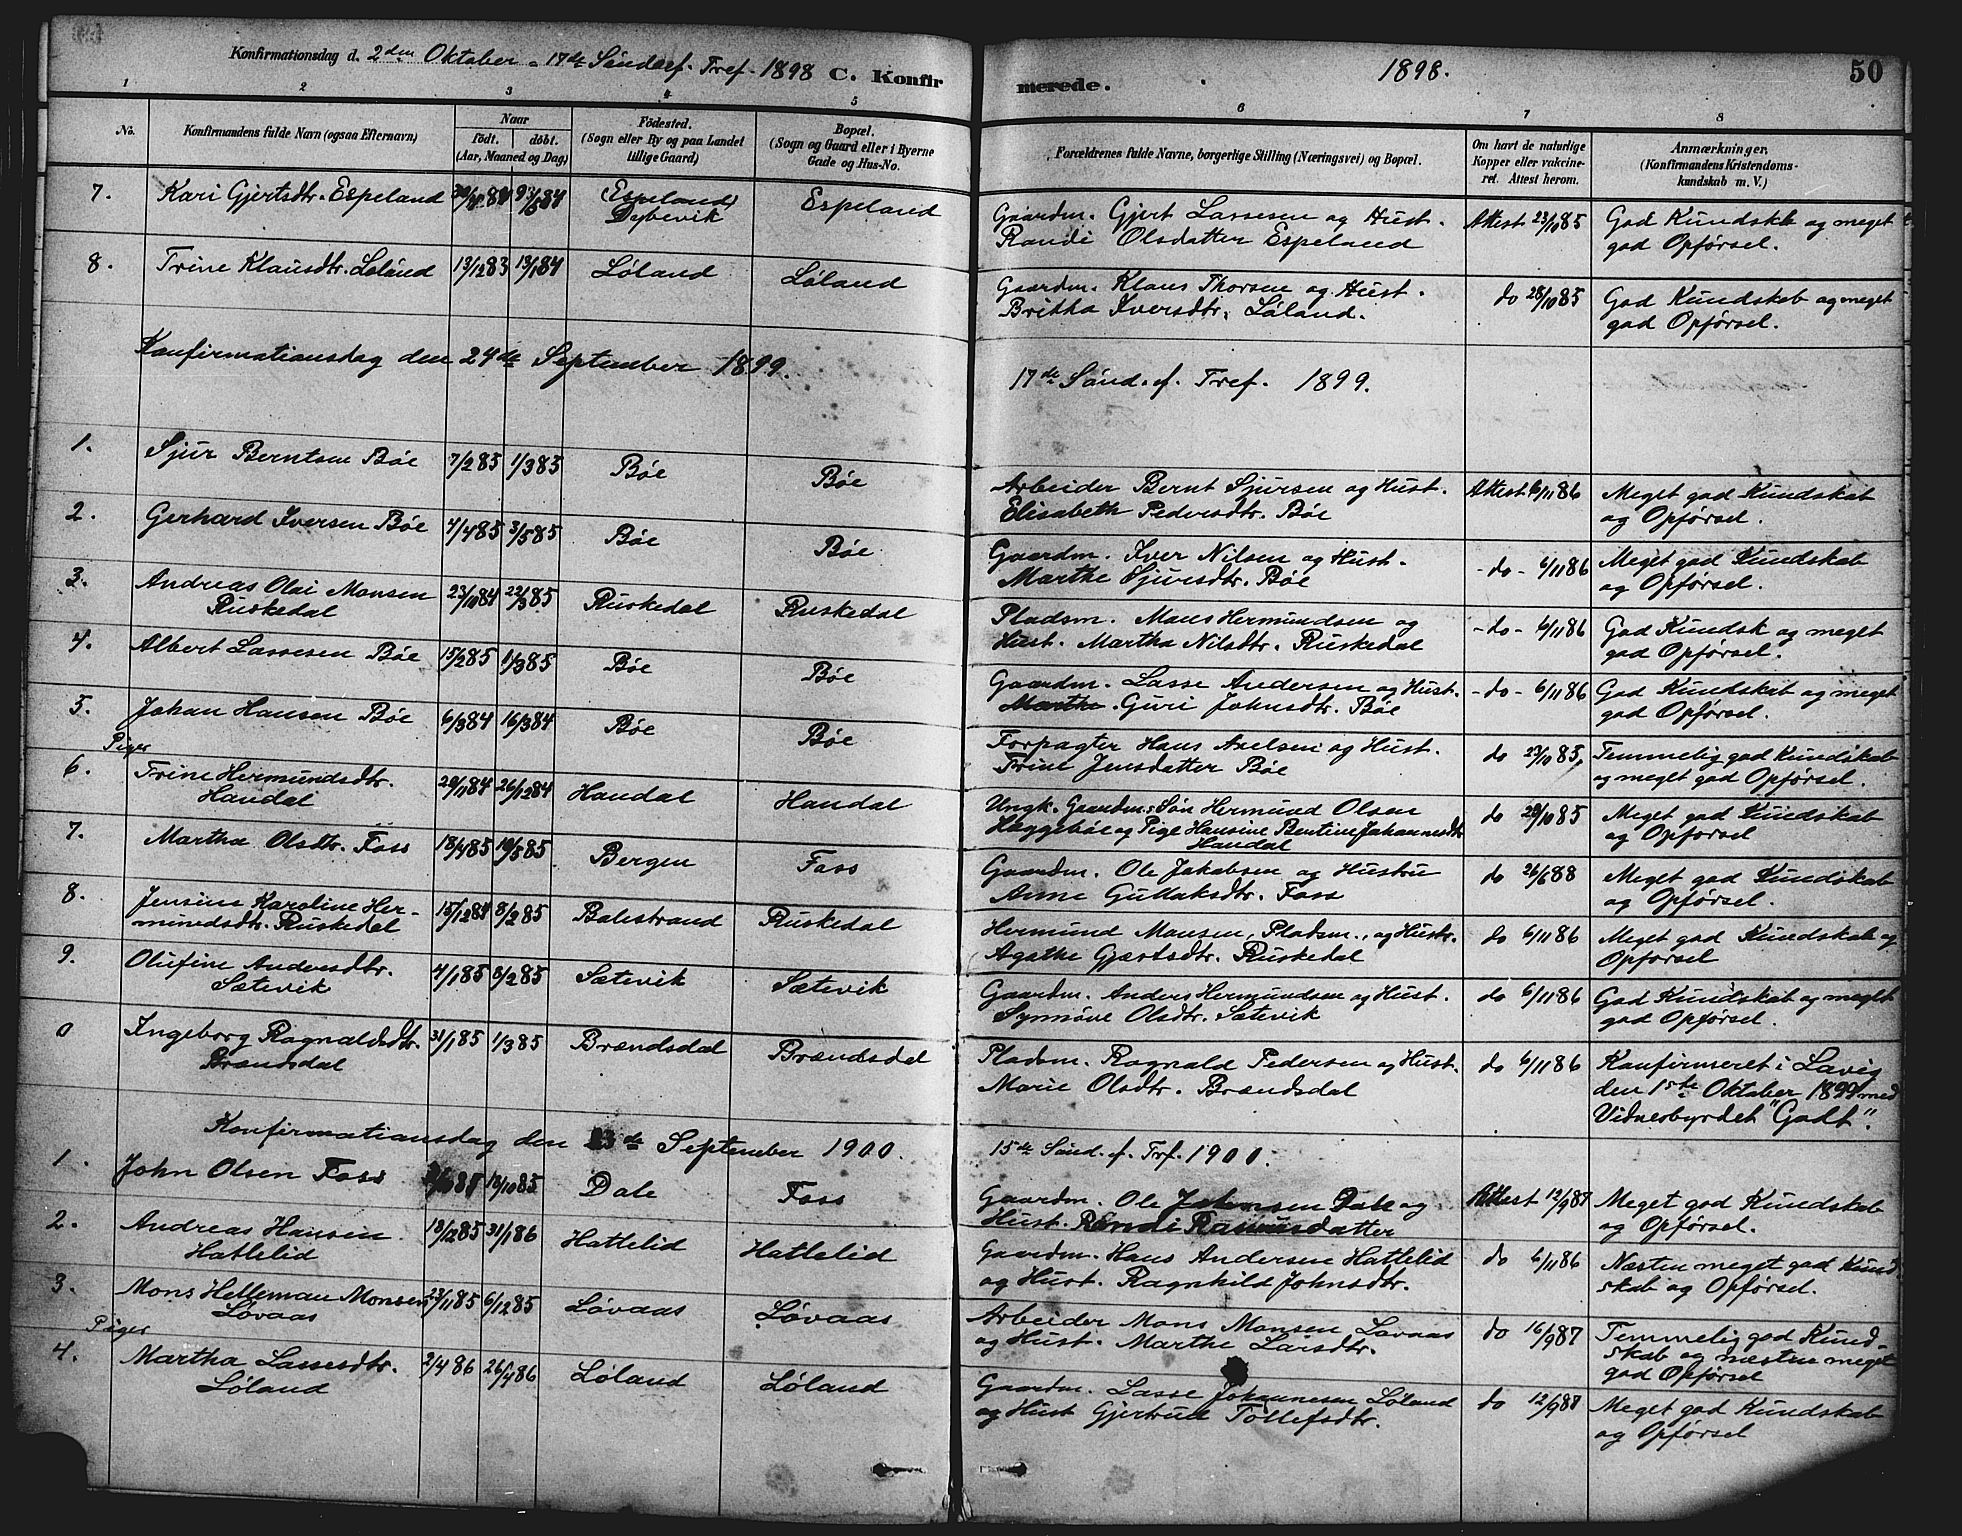 Konfirmationsdag d. 2den Oktober - 17de Søndaef. Tref. 1898 C. Konfirmerede. 1898. 50
1 2 3 4 5 6 7 8
No. Konfirmandens fulde Navn (ogsaa Efternavn) Naar født. døbt. (Aar, Maaned og Dag) Fødested. (Sogn eller By og paa Landet tillige Gaard) Bopæl. (Sogn og Gaard eller i Byerne Gade og Hus-No. Forældrenes fulde Navne, borgerlige Stilling (Næringsvei) og Bopæl. Om havt de naturlige Kopper eller vakcineret. Attest herom. Anmærkninger. (Konfirmandens Kristendomskundskab m. V.)
7. Kari Gjertsdtr. Espeland Espeland Espeland Gaardm. Gjert Lassesen og Hust. Attest 23/10 85 God Kundskb og meget
Randi Olsdatter Espeland god Opførsel.
8. Trine Klausdtr. Løland 13/12 83 13/1 84 Løland Løland Gaardm. Klaus Thorsen og Hust. do 28/10 85 God Kundskab og meget
Britha Iversdtr. Løland. god Opførsel.
Konfirmationsdag den 24de September 1899. 17de Sønd. ef. Tref. 1899.
1. Sjur Berntsen Bøe 7/2 85 1/3 85 Bøe Bøe Arbeider Bernt Sjursen og Hust. Attest 6/11 86 Meget god Kundskab
Elisabeth Pedersdtr. Bøe og Opførsel.
2. Gerhard Iversen Bøe 4/4 85 3/5 85 Bøe Bøe Gaardm. Iver Nilsen og Hust. - do - 6/11 86 Meget god Kundskab
Marthe Sjursdtr. Bøe og Opførsel.
3. Andreas Olai Monsen 23/10 84 22/3 85 Ruskedal Ruskedal Pladsm. Mons Hermundsen og - do - 6/11 86 God Kundsk og meget
Ruskedal Hust. Martha Nilsdtr. Ruskedal god Opførsel.
4. Albert Lassesen Bøe 15/2 85 1/3 85 Bøe Bøe Gaardm. Lasse Andersen og Hust. - do - 6/11 86 God Kundskab og meget
Marthe. Guri Johnsdtr. Bøe god Opførsel.
5. Johan Hansen Bøe 6/3 84 16/3 84 Bøe Bøe Forpagter Hans Axelsen og Hust. do 23/10 85, Temmelig god Kundskab
Trine Jensdatter Bøe og meget god Opførsel.
Piger
6. Trine Hermundsdtr. 20/11 84 26/12 84 Handal Handal Ungk. Gaardm: Søn Hermund Olsen do 28/10 85 Meget god Kundskab
Handal Høggebøe og Pige Hansine Bentine Johannesdtr og Opførsel
Handal
7. Martha Olsdtr. Foss 18/4 85 10/5 85 Bergen Foss Gaardm. Ole Jakobsen og Hustru do 26/6 88 Meget god Kundskab
Anne Gullaksdtr. Foss og Opførsel.
8. Jensine Karoline Her- 15/12 84 8/2 85 Balestrand Ruskedal Hermund Monsen, Pladsm., og Hustr. do 6/11 86 Meget god Kundskab og
mundsdtr. Ruskedal Agathe Gjertsdtr. Ruskedal Opførsel
9. Olufine Andersdtr. 4/1 85 8/2 85 Sætevik Sætevik Gaardm. Anders Hermundsen og Hust. do 6/11 86 God Kundskab og meget
Sætevik Synnøve Olsdtr. Sætevik god Opførsel.
0 Ingeborg Ragnaldsdtr. 31/1 85 1/3 85 Brændsdal Brændsdal Pladsm. Ragnald Pedersen og Hust. do 6/11 86 Konfirmeret i Lavig
Brændsdal Marie Olsdtr. Brændsdal den 1ste Oktober 1899 med
Vidnesbyrdet "Godt".
Konfirmationsdag den 23de September 1900. 15de Sønd. ef. Trf. 1900.
1. John Olsen Foss 18/10 85 Dale Foss Gaardm. Ole Johnsen Dale og Attest 12/9 87 Meget god Kundskab
Hust. Randi Rasmusdatter og Opførsel.
2. Andreas Hansen 18/12 85 31/1 86 Hattelid Hattelid Gaardm. Hans Andersen Hattelid do 6/11 86 Næsten meget god Kund
Hattelid og Hust. Ragnhild Johnsdtr. skab og Opførsel.
3. Mons Helleman Monsen 23/11 85 6/12 85 Løvaas Løvaas Arbeider Mons Monsen Løvaas do 16/9 87 Temmelig god Kund-
Løvaas og Hust. Marthe Larsdtr. skab og næsten meget
god Opførsel
Piger
4. Martha Lassesdtr. 2/4 86 26/4 86 Løland Løland Gaardm. Lasse Johannesen Løland do 12/9 87 Meget god Kundskab
Løland og Hust Gjertrud Tollefsdtr. og Opførsel